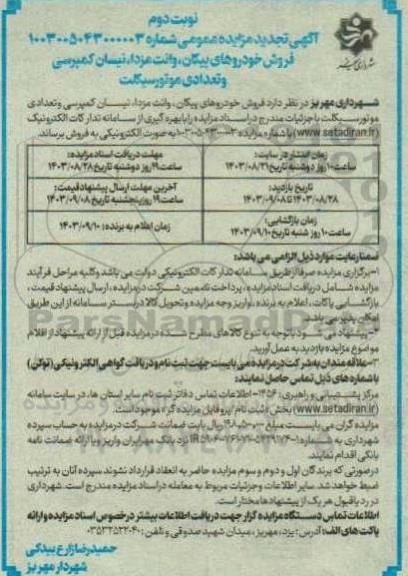 نوبت دوم
آگهی تجدید مزایده عمومی شماره ۱۰۰۳۰۰۵۰۴۳۰۰۰۰۰۳
فروش خودروهای پیکان، وانت مزدا، نیسان کمپرسی
و تعدادی موتورسیکلت
شهرداری مهریز
شهرداری مهریز در نظر دارد فروش خودروهای پیکان، وانت مزدا، نیسان کمپرسی و تعدادی
موتورسیکلت با جزئیات مندرج در اسناد مزایده را با بهره گیری از سامانه تدارکات الکترونیک
(www.setadiran.ir) با شماره مزایده ۱۰۰۳۰۰۵۰۴۳۰۰۰۰۰۳ به صورت الکترونیکی به فروش برساند.
زمان انتشار در سایت: مهلت دریافت اسناد مزایده:
ساعت ۱۰ روز دوشنبه تاریخ ۱۴۰۳/۰۸/۲۱ ساعت ۱۹ روز دوشنبه تاریخ ۱۴۰۳/۰۸/۲۸
تاریخ بازدید: آخرین مهلت ارسال پیشنهاد قیمت:
۱۴۰۳/۰۸/۲۸ تا ۱۴۰۳/۰۹/۰۸ ساعت ۱۹ روز پنجشنبه تاریخ ۱۴۰۳/۰۹/۰۸
زمان بازگشایی: زمان اعلام به برنده: ۱۴۰۳/۰۹/۱۰
ساعت ۱۰ روز شنبه تاریخ ۱۴۰۳/۰۹/۱۰
ضمنا رعایت موارد ذیل الزامی می باشد:
۱-برگزاری مزایده صرفا از طریق سامانه تدارکات الکترونیکی دولت می باشد و کلیه مراحل فرآیند
مزایده شامل دریافت اسناد مزایده، پرداخت تضمین شرکت در مزایده، ارسال پیشنهاد قیمت،
بازگشایی پاکات، اعلام به برنده، واریز وجه مزایده و تحویل کالا در بستر سامانه از این طریق
امکان پذیر می باشد.
۲-پیشنهاد می شود با توجه به تنوع کالاهای مطرح شده در مزایده قبل از ارائه پیشنهاد از اقلام
موضوع مزایده بازدید به عمل آورید.
۳-علاقه مندان به شرکت در مزایده می بایست جهت ثبت نام و دریافت گواهی الکترونیکی (توکن)
با شماره های ذیل تماس حاصل نمایند:
مرکز پشتیبانی و راهبری: ۱۴۵۶- اطلاعات تماس دفاتر ثبت نام سایر استان ها، در سایت سامانه
(www.setadiran.ir) بخش «ثبت نام / پروفایل مزایده گر» موجود است.
مزایده گران می بایست مبلغ ریال بابت ضمانت شرکت در مزایده به حساب سپرده
شهرداری به شماره نزد بانک مهر ایران واریز و یا ارائه ضمانت نامه
بانکی اقدام نمایند.
در صورتی که برندگان اول و دوم و سوم مزایده حاضر به انعقاد قرارداد نشوند سپرده آنان به ترتیب
ضبط خواهد شد. سایر اطلاعات و جزئیات مربوط به معامله در اسناد مزایده مندرج است. شهرداری
در رد یا قبول هر یک از پیشنهادها مختار است.
اطلاعات تماس دستگاه مزایده گزار جهت دریافت اطلاعات بیشتر در خصوص اسناد مزایده و ارائه
پاکت های الف: آدرس: یزد، مهریز، میدان شهید صدوقی و تلفن: ۰۳۵۳۲۵۲۲۰۴۰
حمیدرضا زارع بیدکی
شهردار مهریز